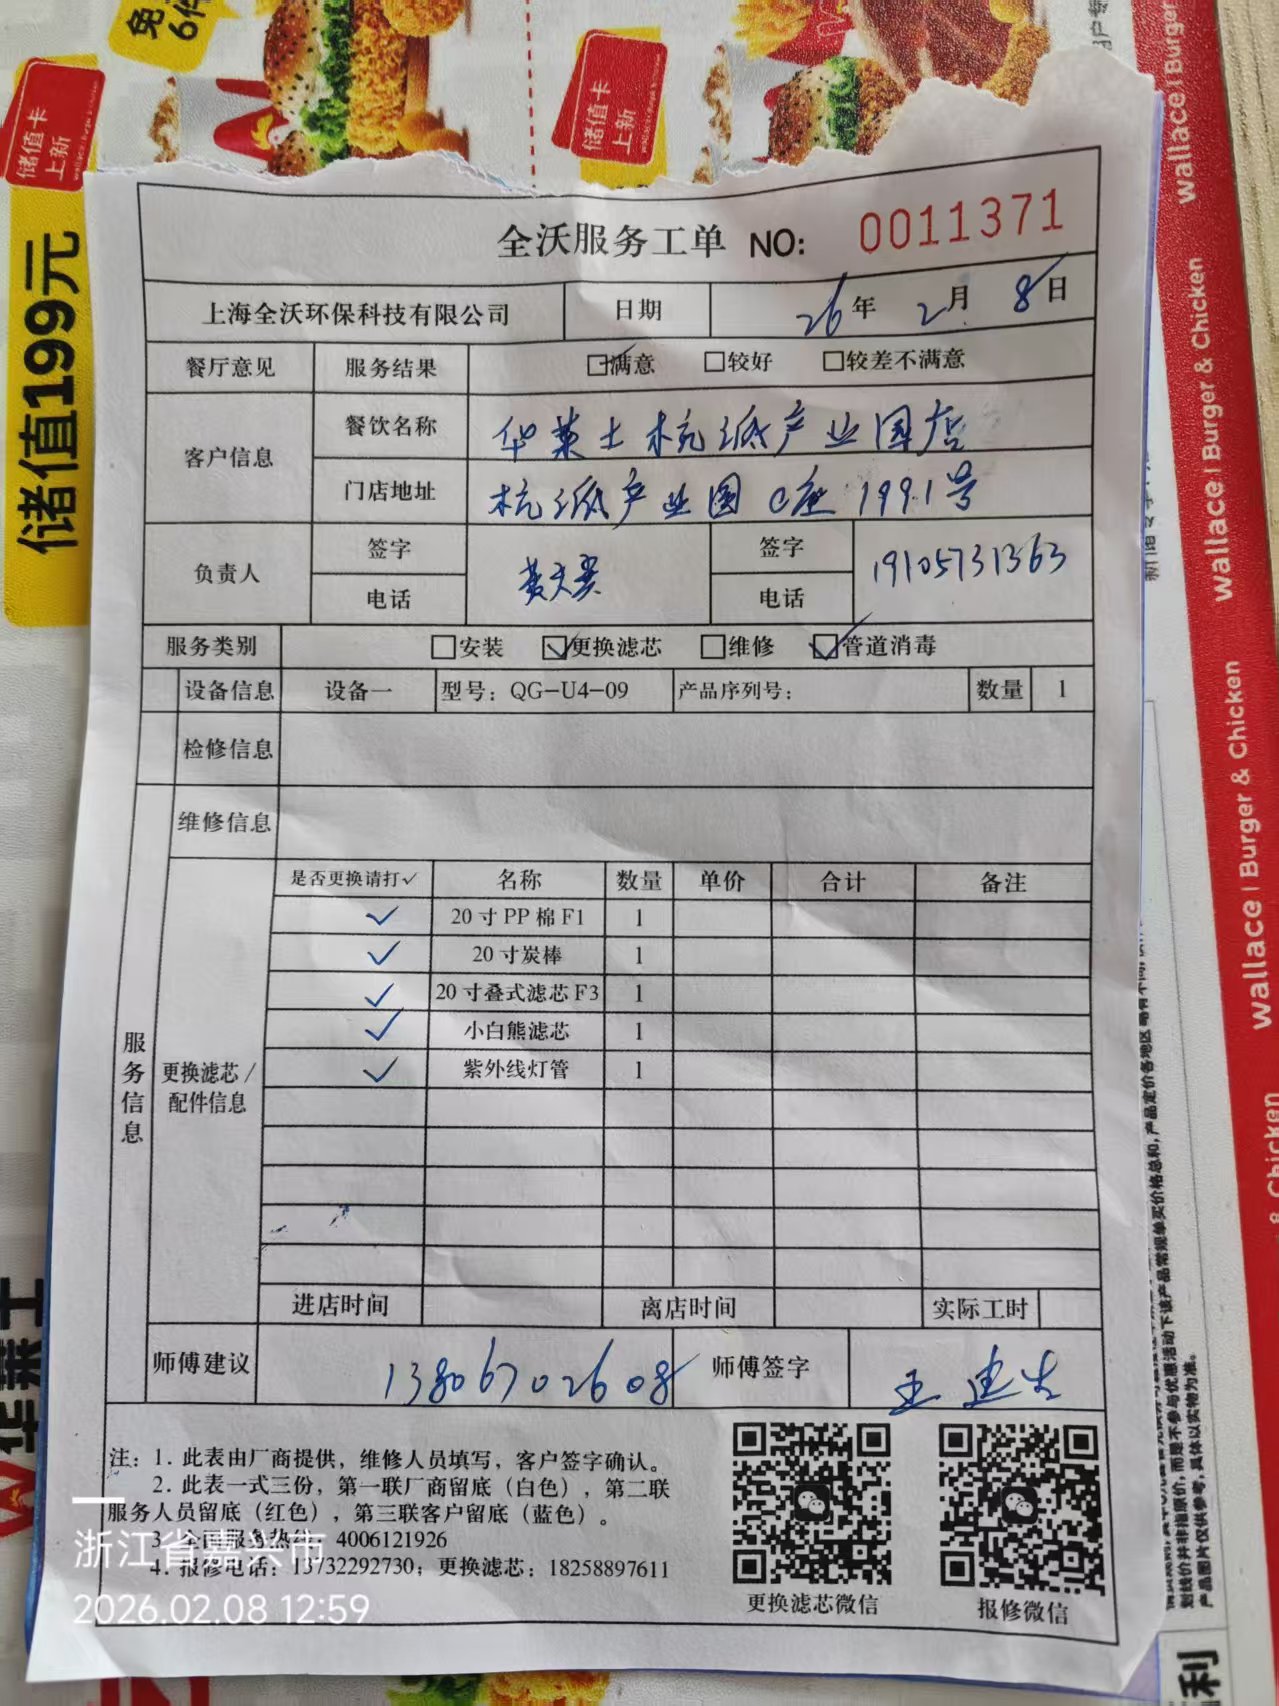 免
6件
储值卡
上新
储值卡
上新
储值199元
wallace | Burger
wallace | Burger & Chicken
wallace | Burger & Chicken
& Chicken
全沃服务工单 NO: 0011371
上海全沃环保科技有限公司 日期 26年 2月 8日
餐厅意见 服务结果 ☑满意 □较好 □较差不满意
客户信息 餐饮名称 华莱士杭派产业园店
门店地址 杭派产业园C座1991号
负责人 签字 签字 19105731363
电话 电话
服务类别 □安装 ☑更换滤芯 □维修 ☑管道消毒
设备信息 设备一 型号：QG-U4-09 产品序列号： 数量 1
检修信息
维修信息
服务信息
更换滤芯/
配件信息
是否更换请打✓ 名称 数量 单价 合计 备注
✓ 20寸PP棉F1 1
✓ 20寸炭棒 1
✓ 20寸叠式滤芯F3 1
✓ 小白熊滤芯 1
✓ 紫外线灯管 1
进店时间 离店时间 实际工时
师傅建议 13806702608 师傅签字 王建生
注：1. 此表由厂商提供，维修人员填写，客户签字确认。
2. 此表一式三份，第一联厂商留底（白色），第二联
服务人员留底（红色），第三联客户留底（蓝色）。
3. 全国服务热线：4006121926
4. 报修电话：13732292730；更换滤芯：18258897611
更换滤芯微信 报修微信
浙江省嘉兴市
2026.02.08 12:59
华莱士
利